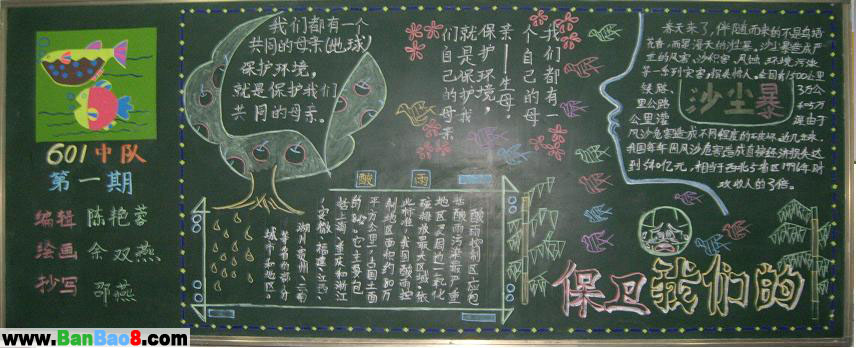 601中队
第一期
编辑 陈艳蓉
绘画 余双燕
抄写 邵燕
我们都有一个
共同的母亲(地球)
保护环境,
就是保护我们
共同的母亲。
我们都有一
个自己的母
亲—生母。
保护环境,
就是保护我
们自己的母亲
酸雨
酸雨控制区应包
括酸雨污染最严重
地区及周边二氧化
硫排放量最大区域。按
此标准,我国酸雨控
制地区面积约80万
平方公里,占国土面
的8%,它主要包
括上海、重庆和浙江
、安徽、福建、江西、
湖南、贵州、云南
等省的部分
城市和地区。
春天来了,伴随而来的不是鸟语
花香,而是漫天的沙尘。沙尘暴造成严
重的风害,沙积害、风蚀、环境污染
等一系列灾害,
1500公里
铁路、3万公
里公路
公里灌
沙尘暴
风沙危害造成不同程度的
我国每年因风沙危害造成直接经济损失达
到540亿元,相当于西北5省区1996年财
政收入的3倍。
保卫我们的
www.BanBao8.com